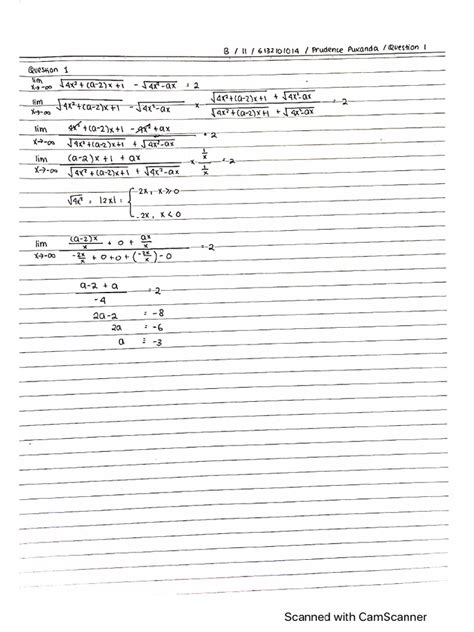 B / 11 / 6132101014 / Prudence Puxanda / Question 1
Question 1
lim x→-∞ √4x² + (a-2)x + 1 - √4x² - ax = 2
lim x→-∞ √4x² + (a-2)x + 1 - √4x² - ax × √4x² + (a-2)x + 1 + √4x² - ax / √4x² + (a-2)x + 1 + √4x² - ax = 2
lim x→-∞ 4x² + (a-2)x + 1 - 4x² + ax / √4x² + (a-2)x + 1 + √4x² - ax = 2
lim x→-∞ (a-2)x + 1 + ax / √4x² + (a-2)x + 1 + √4x² - ax × 1/x / 1/x = 2
√4x² = |2x| = { 2x, x ≥ 0
-2x, x < 0
lim x→-∞ (a-2)x/x + 0 + ax/x / -2x/x + 0 + 0 + (-2x/x) - 0 = 2
a - 2 + a / -4 = 2
2a - 2 = -8
2a = -6
a = -3
Scanned with CamScanner